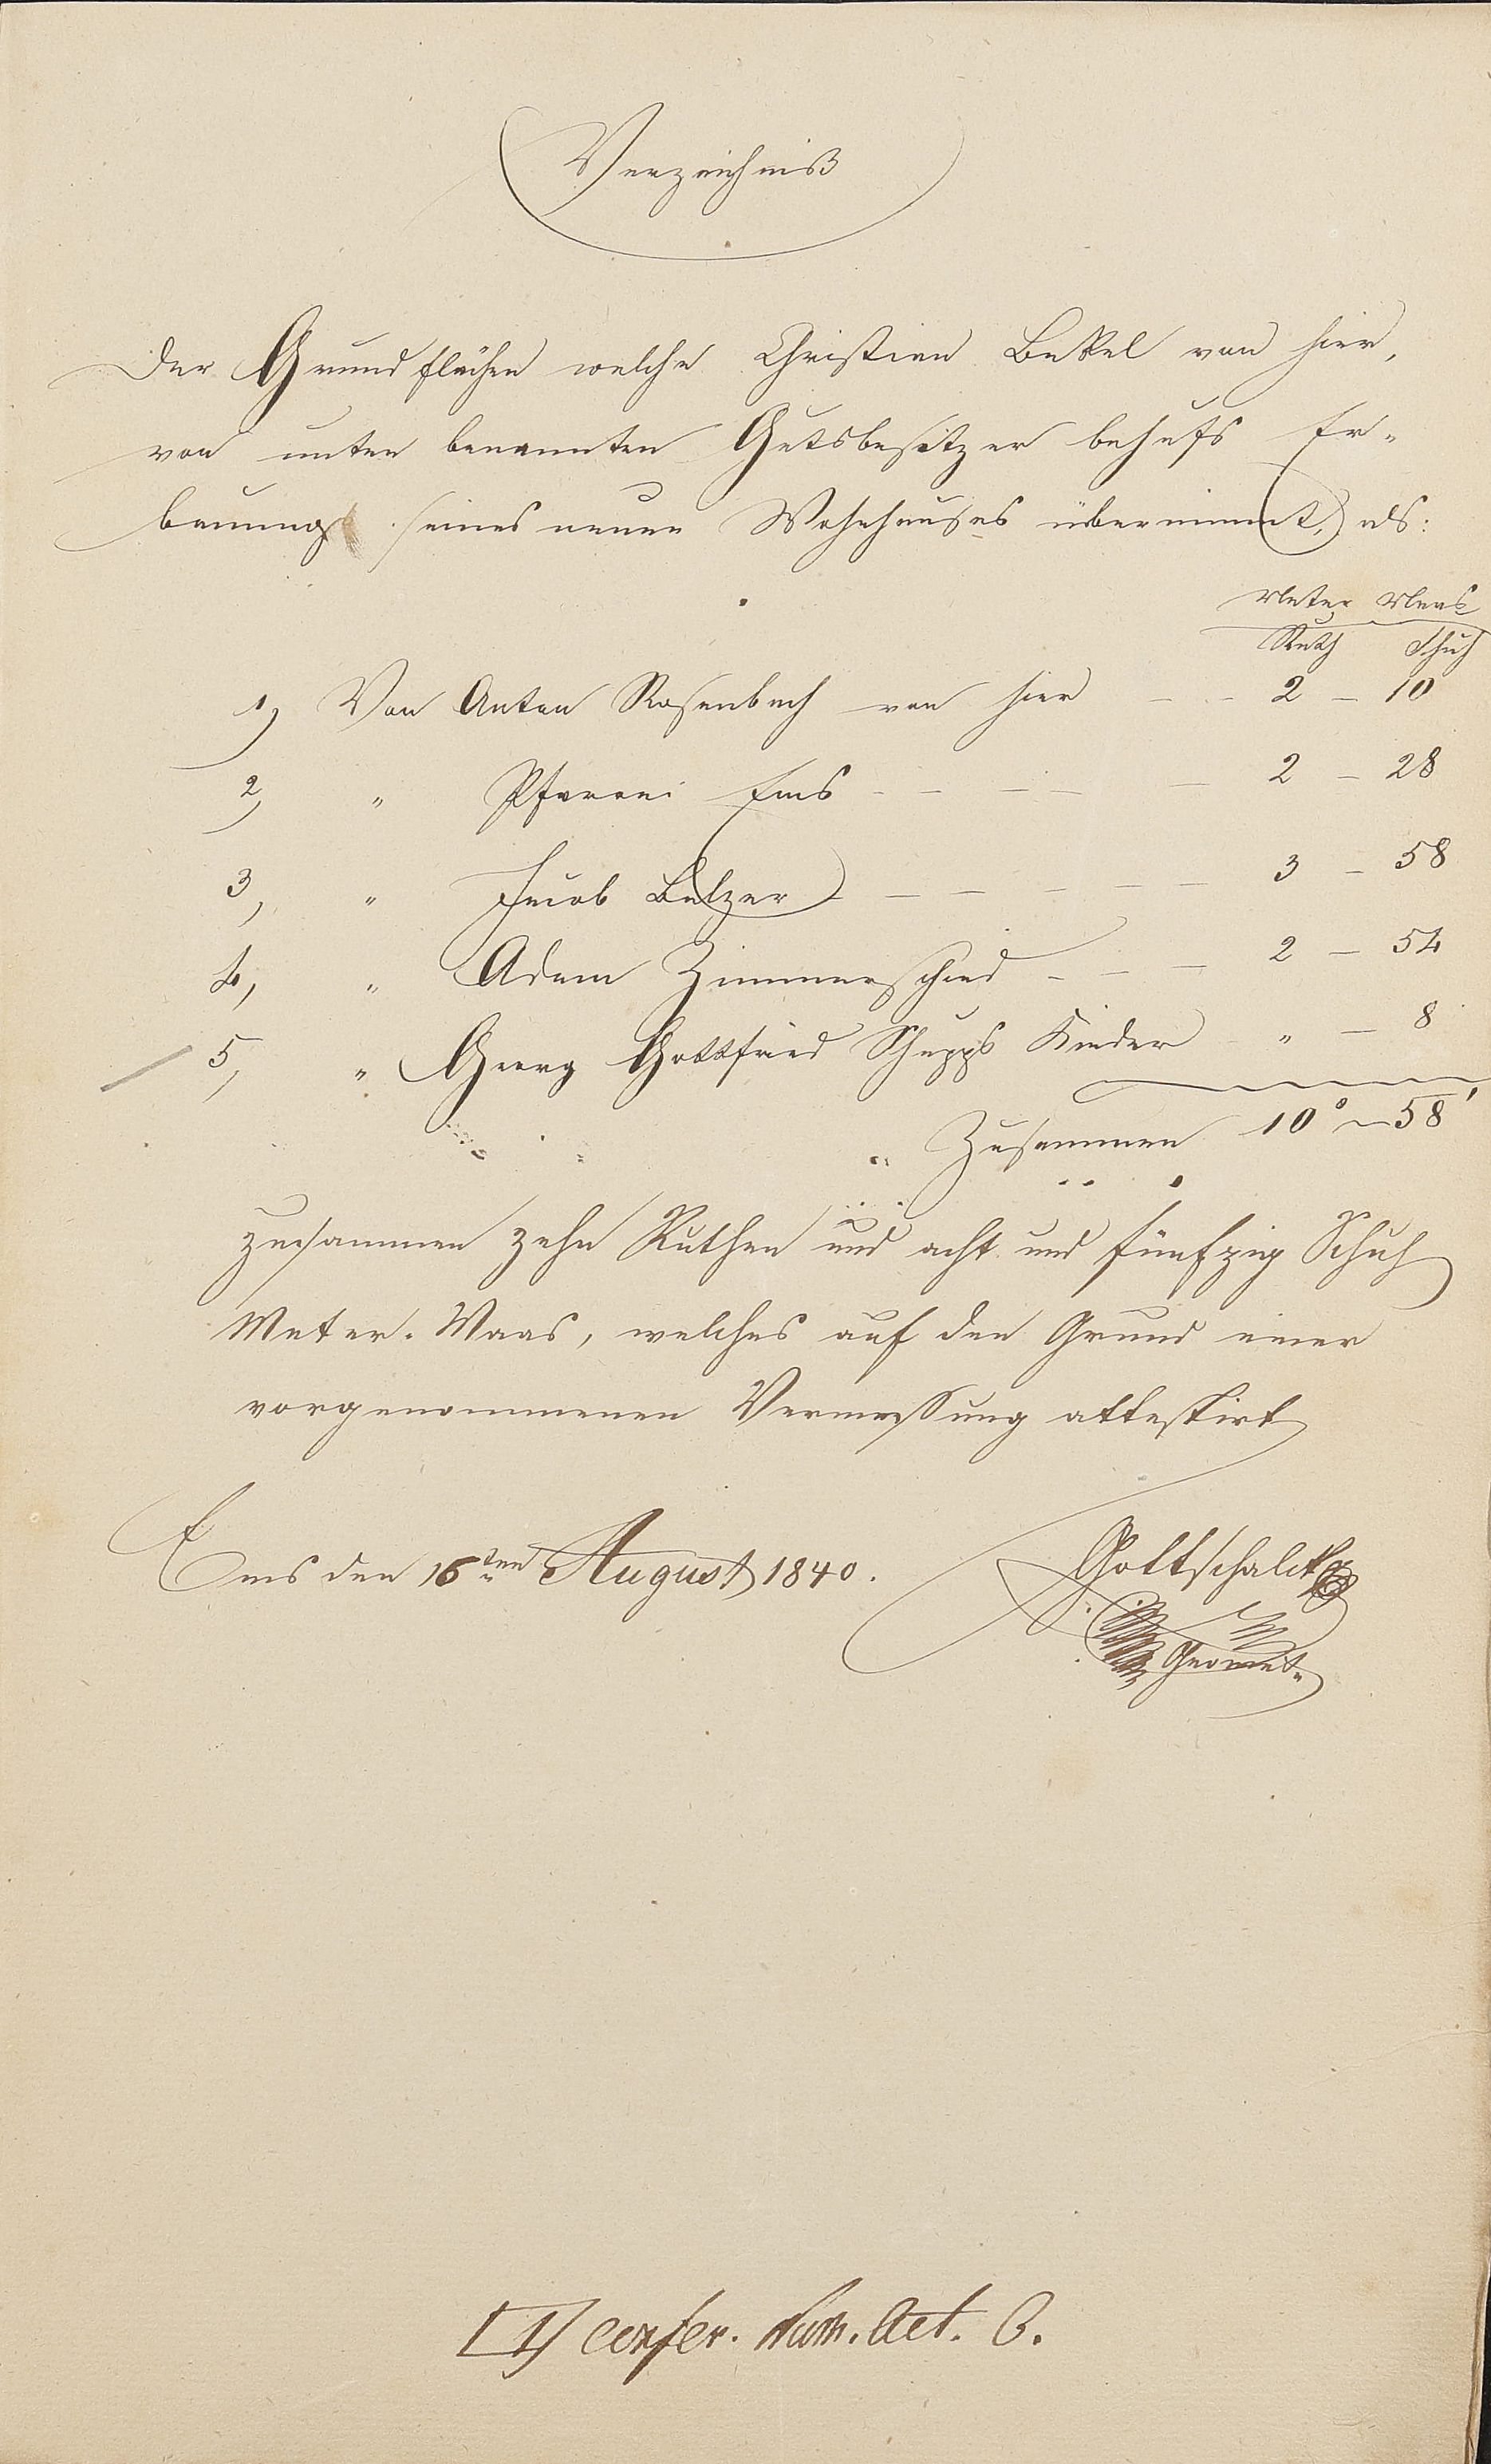 Verzeichniß
Der Grundflächen welche Christian Bekel von hier,
von unten benannten Gutsbesitzer behufs Er-
bauung seines neuen Wohnhauses übernimmt, als:
Meter Maas
Ruth Schuh
1) Von Anton Rosenbach von hier - - 2 - 10
2) " Pfarrei Ems - - - - - 2 - 28
3, " Jacob Balzer - - - - - 3 - 58
4, " Adam Zimmerschied - - - 2 - 54
5, " Georg Gottfried Schupps Kinder " - 8
Zusammen 10° - 58'
zusammen zehn Ruthen und acht und fünfzig Schuh
Meter-Maas, welches auf den Grund einer
vorgenommenen Vermessung attestirt
Ems den 16ten August 1840.
Gottschalck
Geomet.
confer. Num. Act. 6.